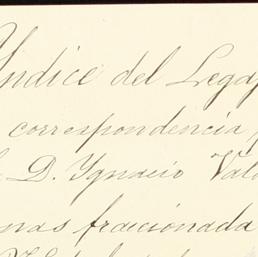 Yndice del Legaj
correspondencia
D. Ygnacio Vald
nas fraccionada